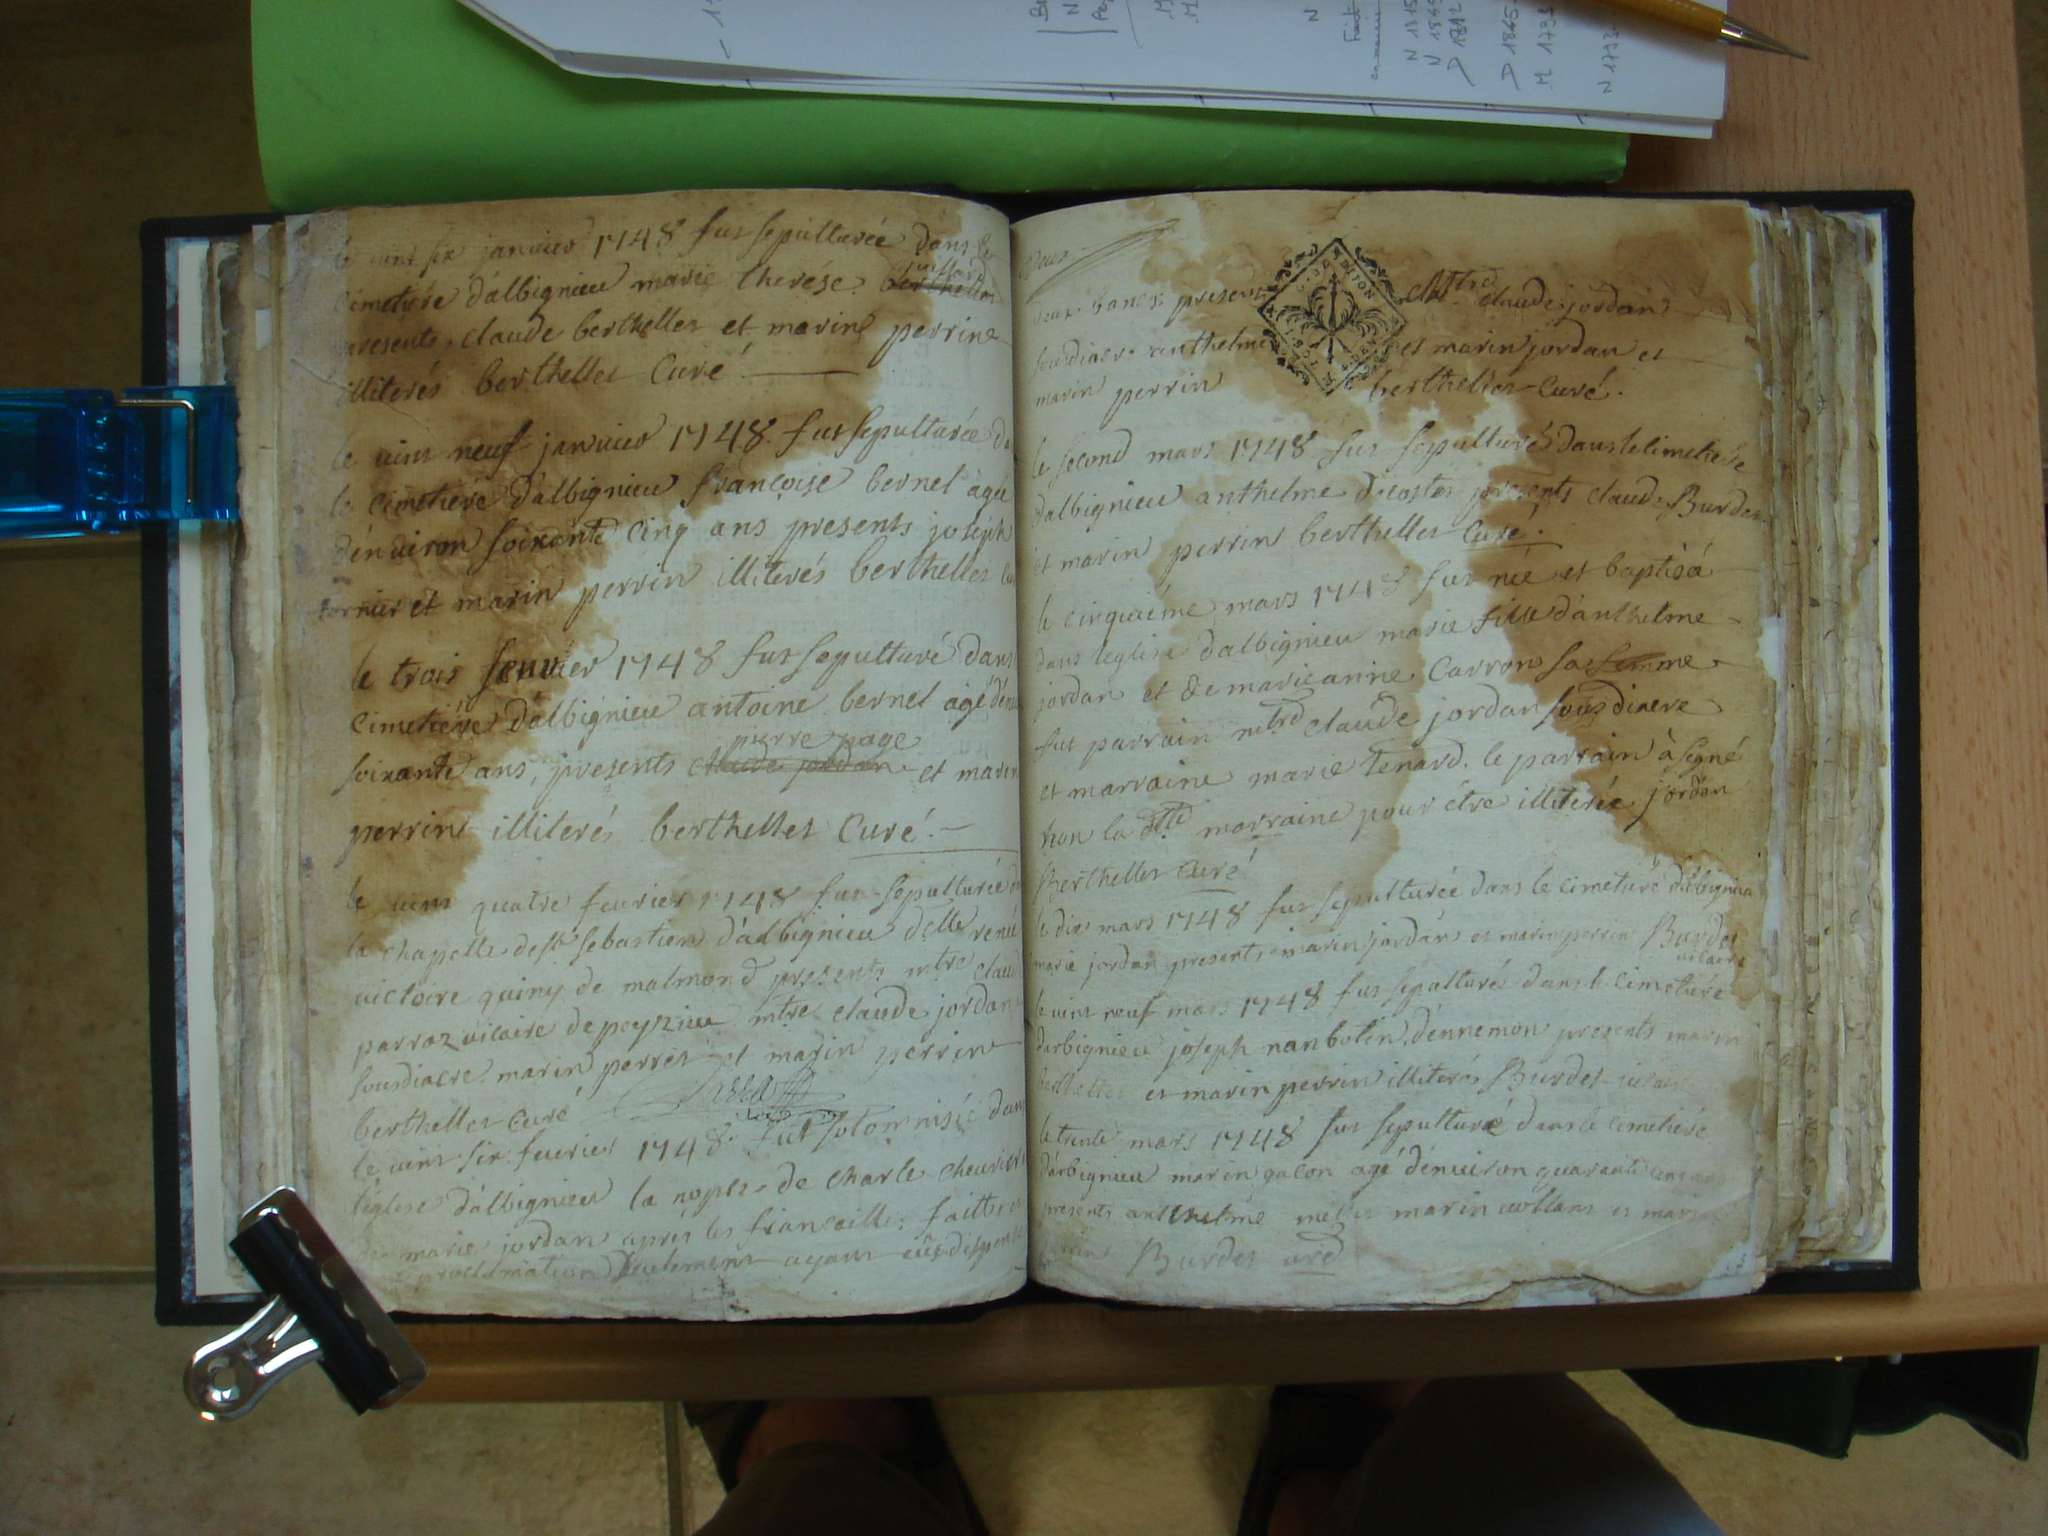 le vint six janvier 1748 fut sepulturée dans le
cimetière d'albignieu marie therése juillard berthellet
presents claude berthellet et marin perrin
illiterés berthellet Curé
le vint neuf janvier 1748 fut sepulturée da
le cimetiere d'albignieu françoise bernel agée
d'énviron soixante cinq ans presents joseph
fornier et marin perrin illiterés berthellet
le trois fevvier 1748 fut sepulturé dans
cimetiére d'albignieu antoine bernel agé d'én
pierre page
soixante ans, presents claude jordan et marin
perrin illiterés berthellet Curé
le vint quatre fevrier 1748 fut sepulturée
la chapelle de st sebastien d'albignieu delle
victoire quiny de malmond presents mtre claud
parraz vicaire de peyzieu mtre claude jordan
sousdiacre marin perret et marin perrin
berthellet curé
le vint six fevrier 1748 fut solomnisé dans
l'église d'albignieu la nopce de Charle chevrier
marie jordan aprés les fiançailles faittes
proclamation seulement ayant eü dispen
Deux
deux bancs presents mtre claude jordan
sousdiacre anthelme et marin jordan et
marin perrin berthellet curé
le second mars 1748 fut sepulturé dans le cimetiére
d'albignieu anthelme decostes presents claude Burdet
et marin perrin berthellet Curé
le cinquiéme mars 1748 fut née et baptisá
dans leglise d'albignieu marie fille d'anthelme
jordan et de marieanne Carron sa femme
fut parrain mtre claude jordan sousdiacre
et marraine marie tenard. le parrain à signé
non la ditte marraine pour étre illiterée jordan
Berthellet curé
le dix mars 1748 fut sepulturée dans le cimetiére d'albignieu
marie jordan presents marin jordan et marin perrin Burdet
vicaire
le vint neuf mars 1748 fut sepulturé dans le cimetiére
darbignieu joseph nanbotin d'énnemon presents marin
berthellet et marin perrin illiterés Burdet vicaire
le trente mars 1748 fut sepulturé dans le cimetiére
d'arbignieu marin galon agé d'énviron quarante cinq ans
presents anthelme marin et marin
Burdet